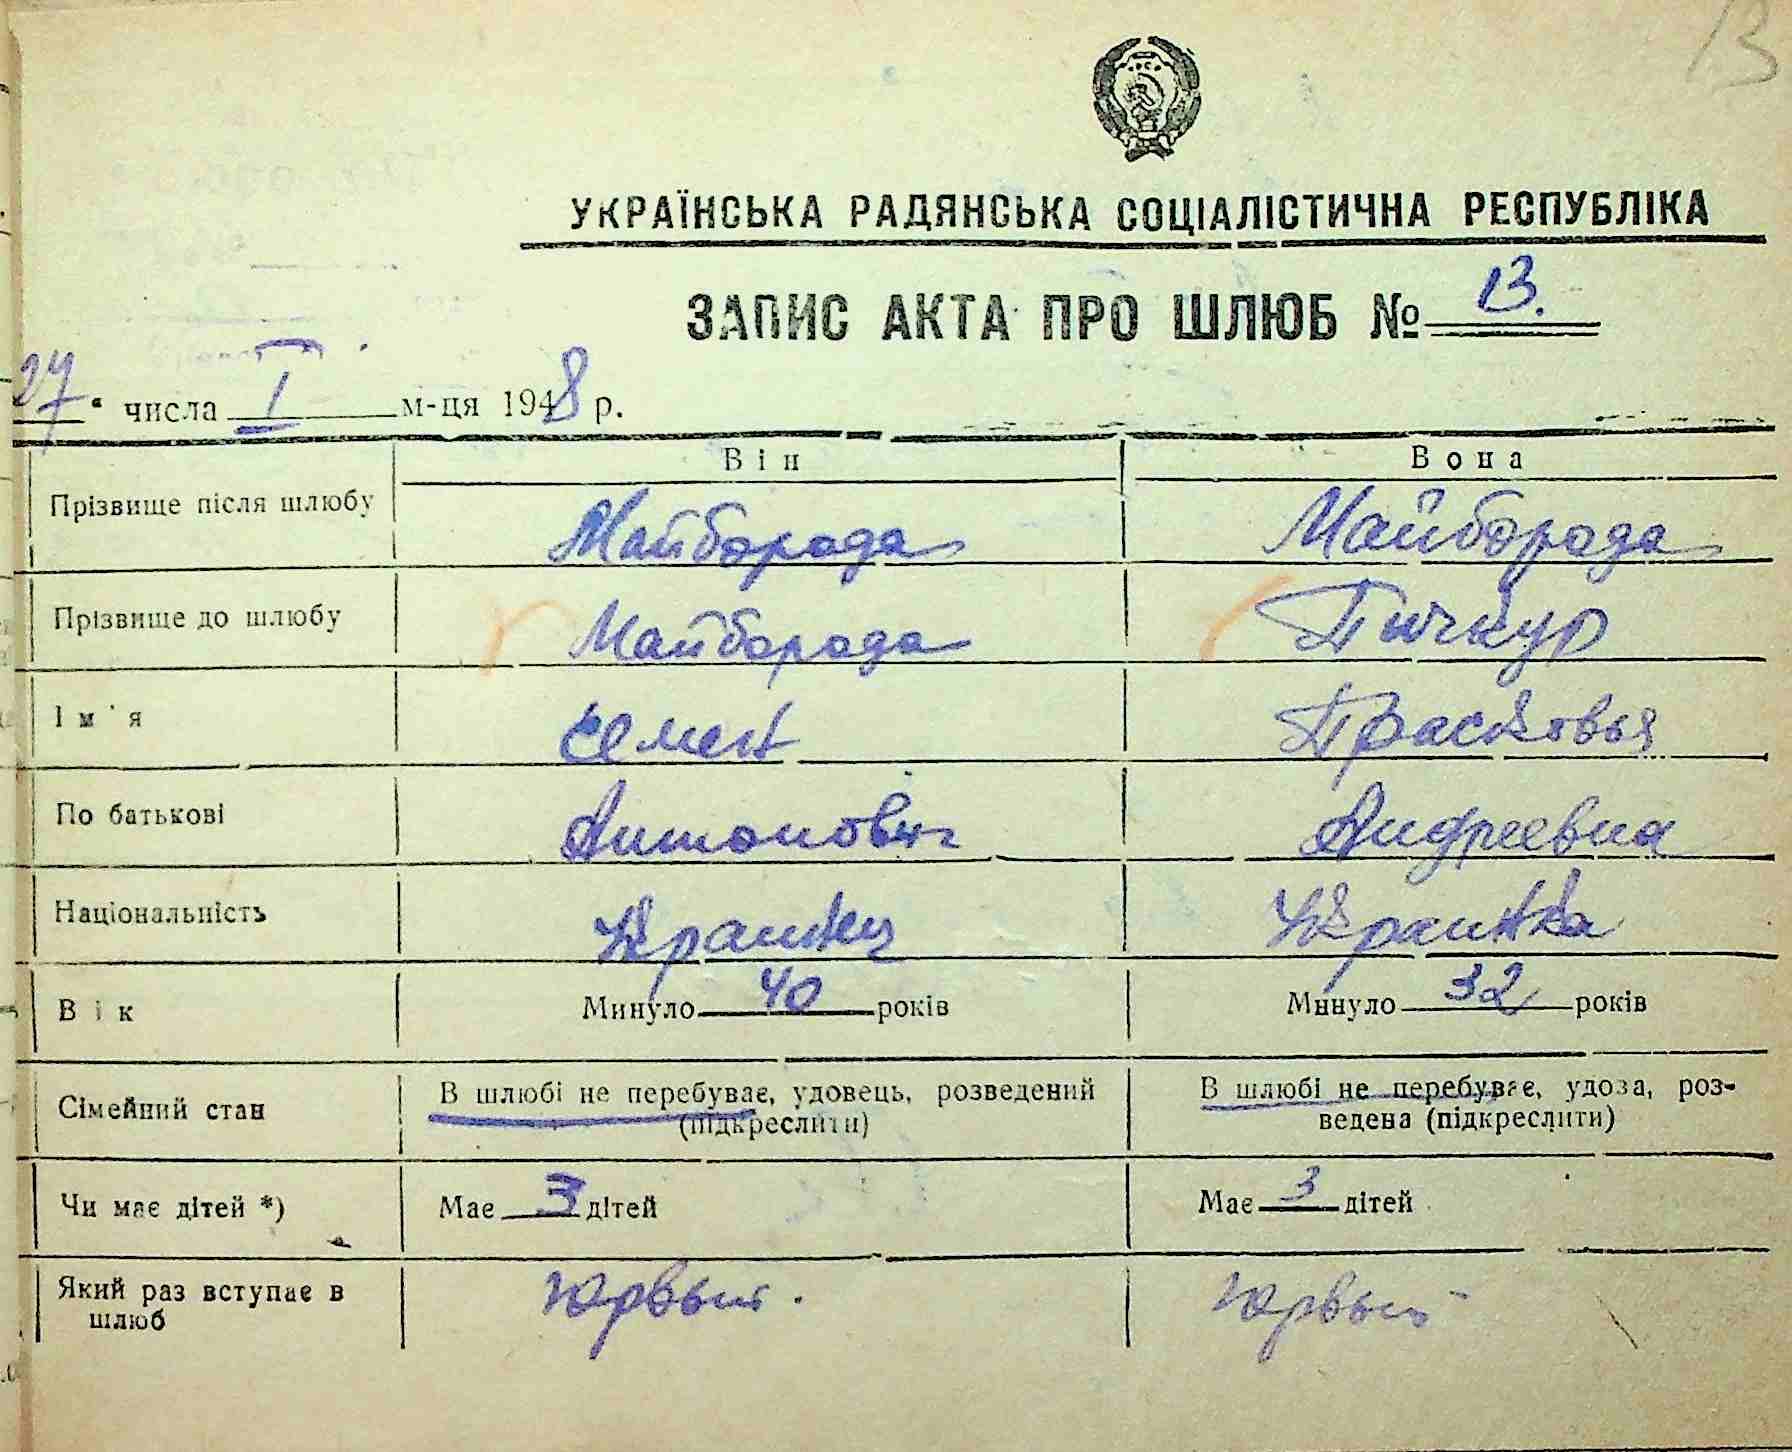 13
УКРАЇНСЬКА РАДЯНСЬКА СОЦІАЛІСТИЧНА РЕСПУБЛІКА
ЗАПИС АКТА ПРО ШЛЮБ № 13.
27 " числа I м-ця 1948 р.
Він Вона
Прізвище після шлюбу Майборода Майборода
Прізвище до шлюбу Майборода Пичкур
Ім'я Семен Прасковья
По батькові Антонович Андреевна
Національність Украинец Украинка
Вік Минуло 40 років Минуло 32 років
Сімейний стан В шлюбі не перебуває, удовець, розведений (підкреслити) В шлюбі не перебуває, удова, роз-
ведена (підкреслити)
Чи має дітей *) Має 3 дітей Має 3 дітей
Який раз вступає в шлюб первый. первый